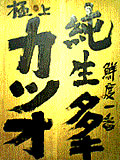 鮮度一番
純生多
極上
カツオ